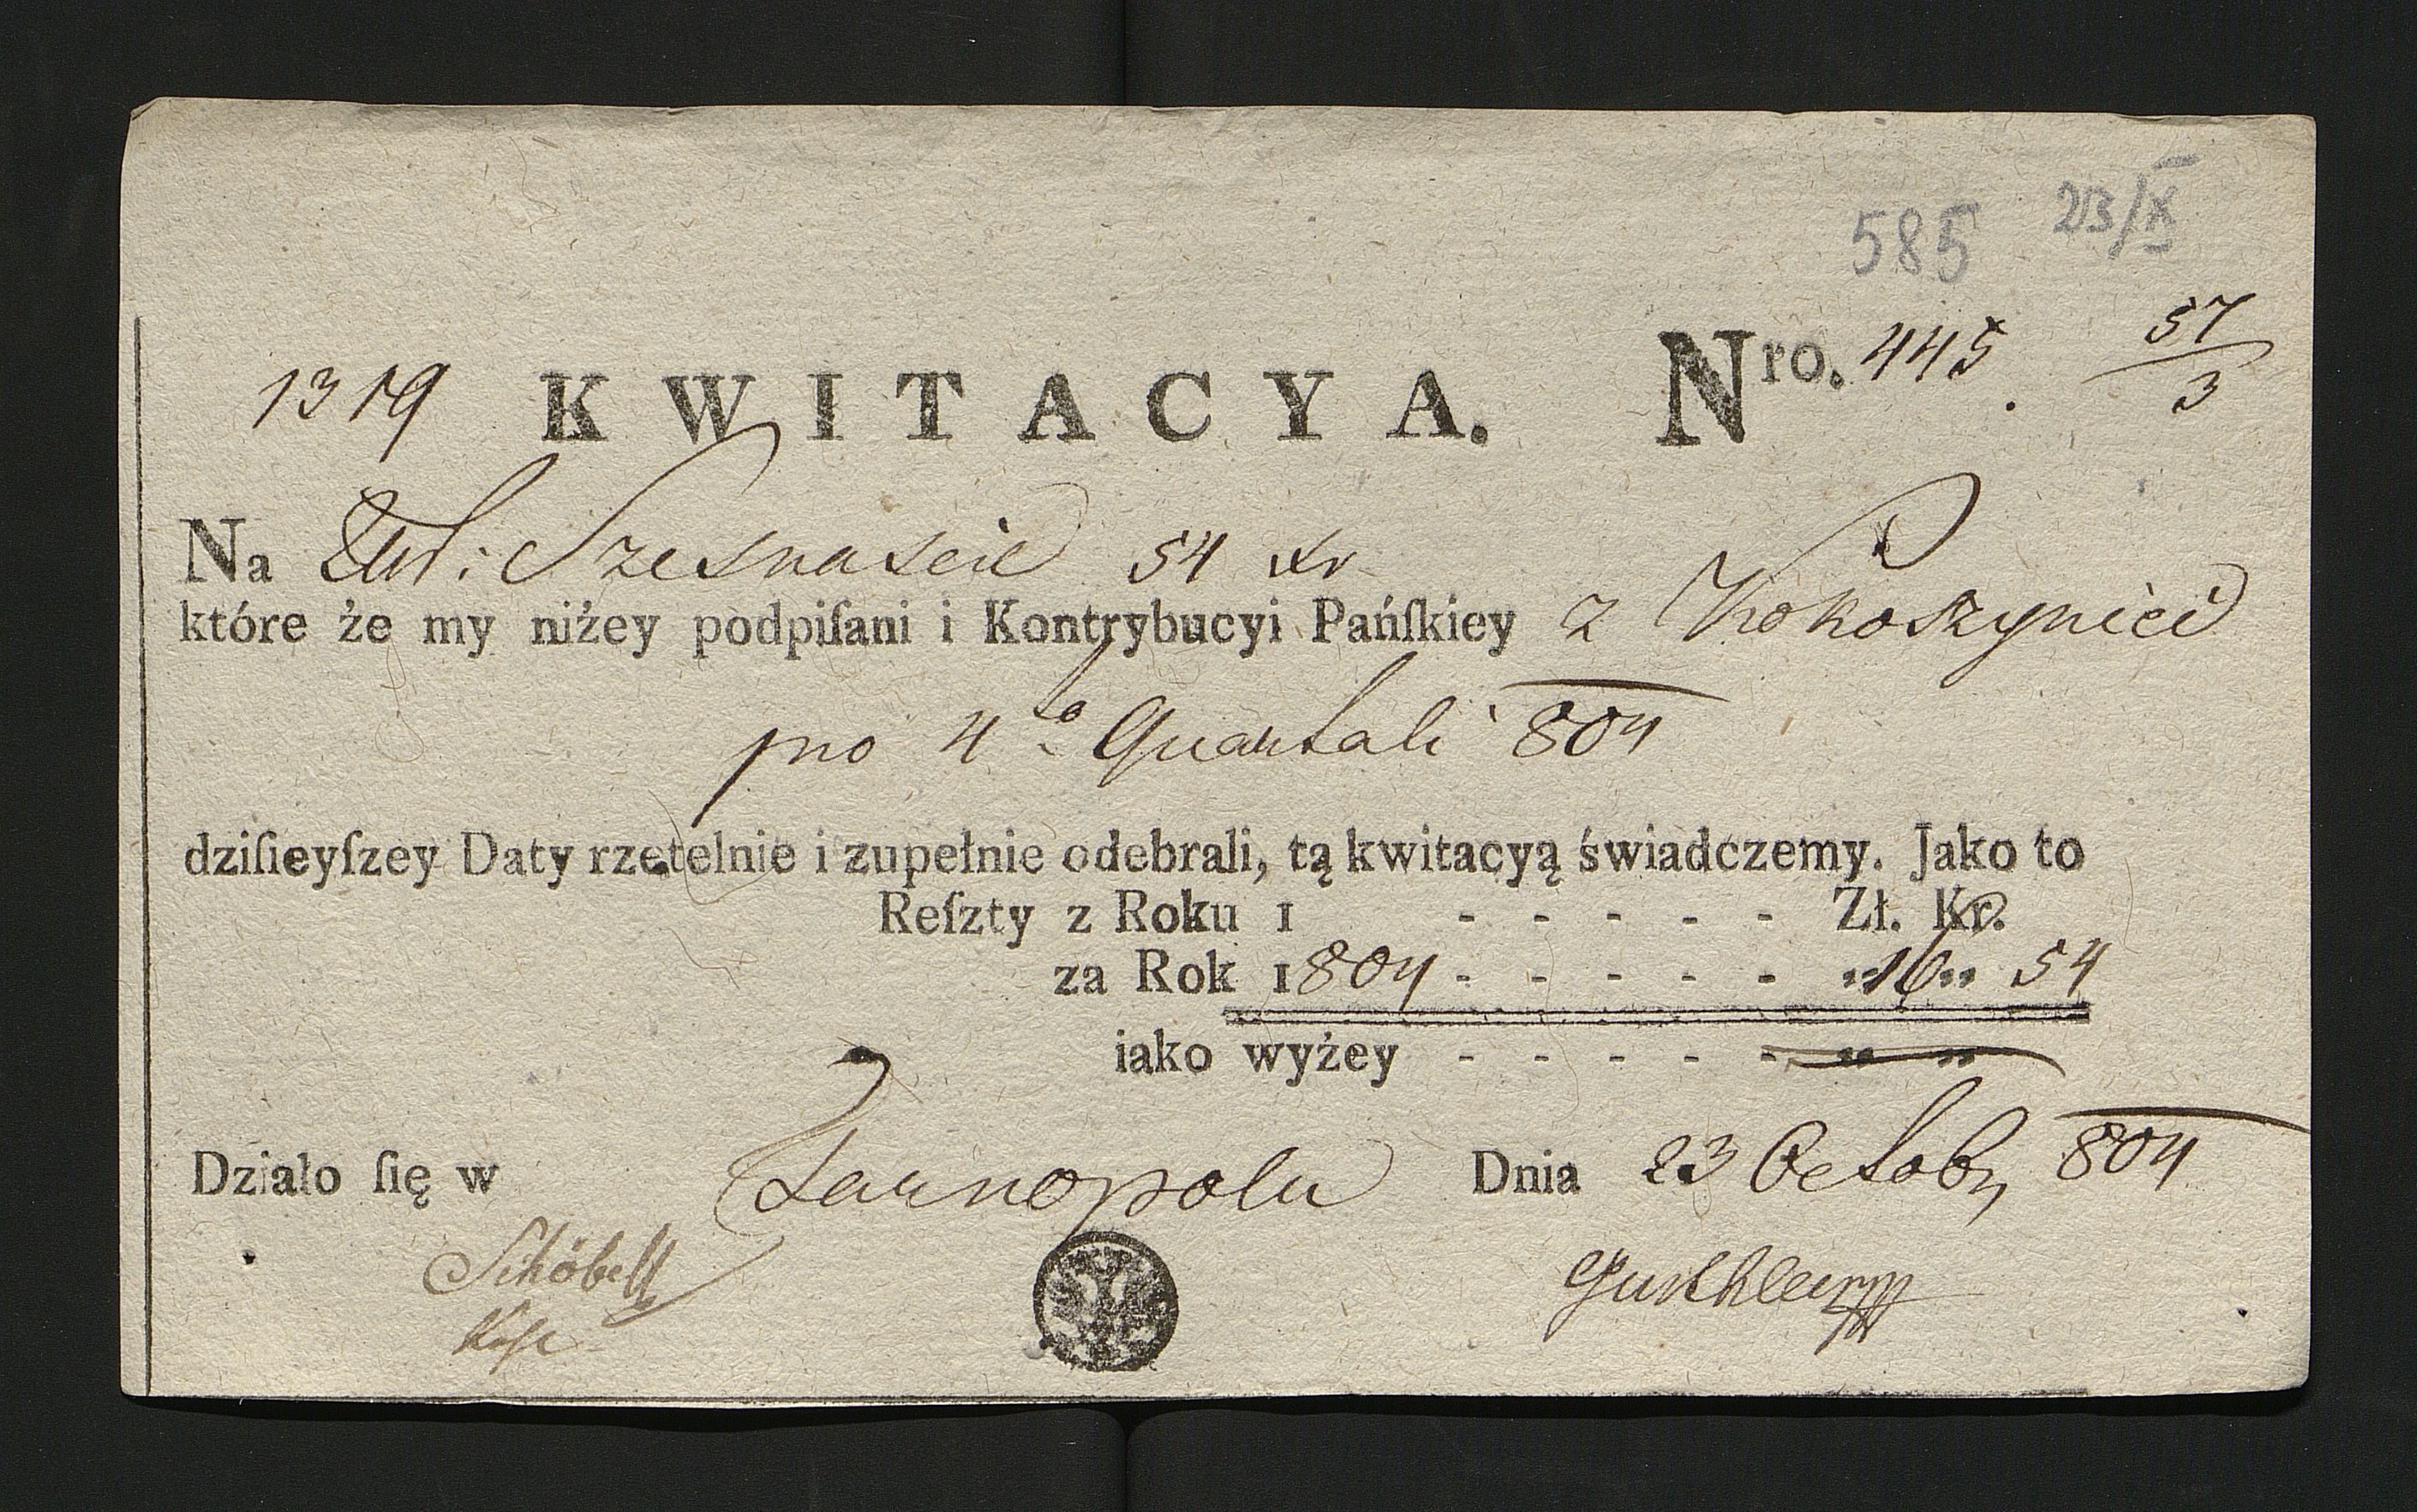 585 23/X
1319 KWITACYA. Nro. 445. 57/3
Na Szesnascie 54 xr
które że my niżey podpiſani i Kontrybucyi Pańſkiey z Kokoszyniec
pro 4to Quartali 804
dziſieyſzey Daty rzetelnie i zupełnie odebrali, tą kwitacyą świadczemy. Jako to
Reſzty z Roku 1 - - - - - Zł. Kr.
za Rok 1804 - - - - - „16„ 54
iako wyżey - - - - - „ „
Działo ſię w Tarnopolu Dnia 23 Octobr 804
Schöbell